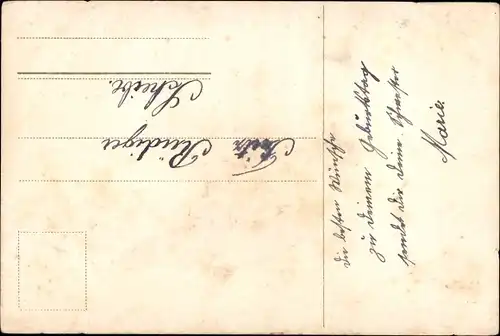 Fritz
Rüdiger
Scheibe.
die besten Wünsche
zu deinem Geburtstag
sendet dir deine Schwester
Marie.